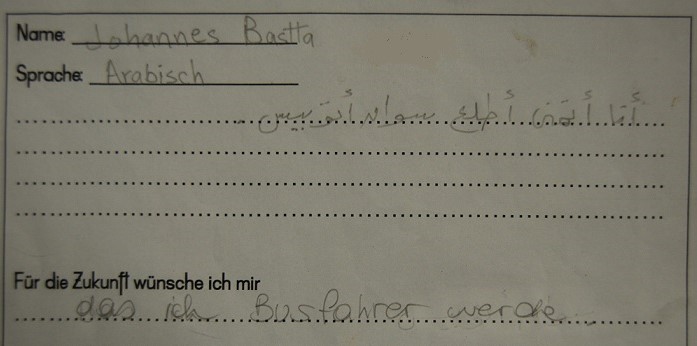 Name: Johannes Bastta
Sprache: Arabisch
أنا أتمنى أطلع سواق أتوبيس.
Für die Zukunft wünsche ich mir
das ich Busfahrer werde.